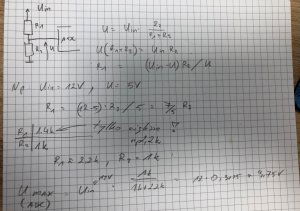 Uin
R1
R2
U
ADC
U = Uin · R2 / R1+R2
U (R1+R2) = Uin R2
R1 = (Uin-U) R2 / U
Np. Uin = 12V, U = 5V
R1 = (12-5) · R2 / 5 = 7/5 R2
R1 | 1.4k
R2 | 1k
tylko
2,2k
R1 = 2.2k, R2 = 1k
U max (ADC) = Uin 12V · 1k / 1k+2.2k = 12 · 0,3125 = 3,75V